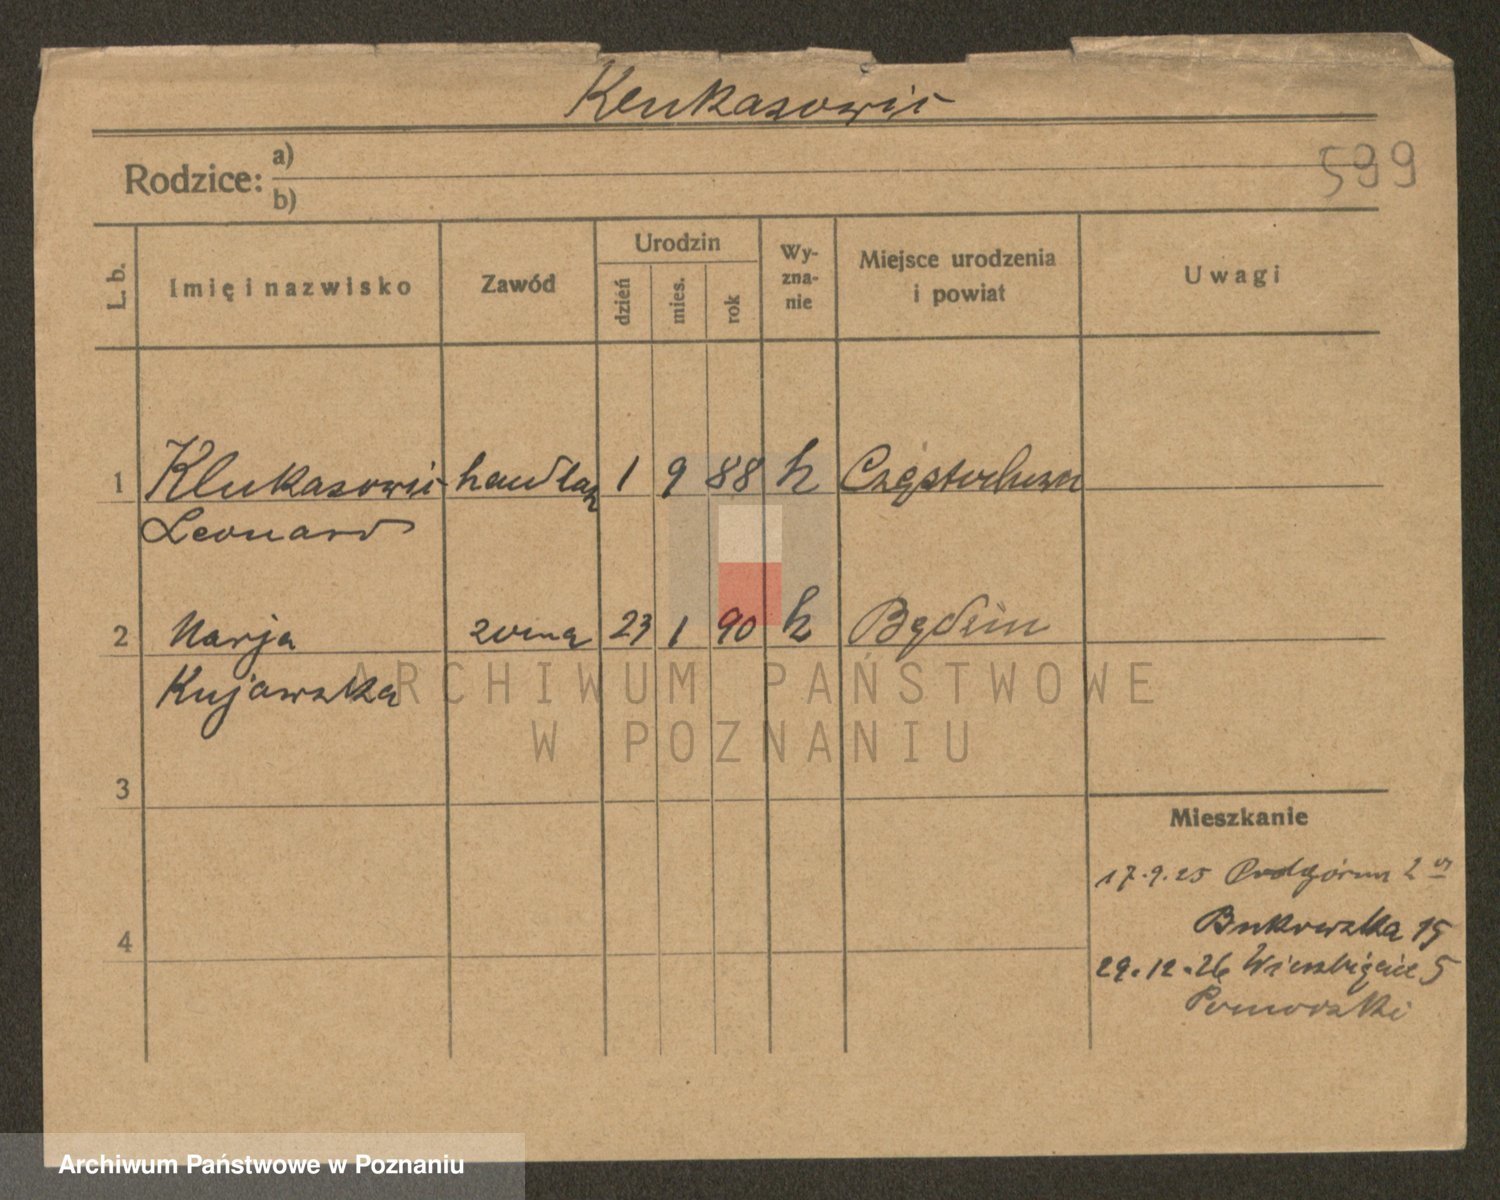 Klukasowic
Rodzice: a)
b)
599
L. b.
Imię i nazwisko
Zawód
Urodzin
dzień
mies.
rok
Wy-
zna-
nie
Miejsce urodzenia
i powiat
Uwagi
1 Klukasowic handlarz 1 9 88 k Częstochowa
Leonard
2 Marja żona 23 1 90 k Będzin
Kujawska
3
4
Mieszkanie
17.9.25 Podgórna 2
Bukowska 15
29.12.26 Wierzbięcice 5
Pomorski
ARCHIWUM PAŃSTWOWE
W POZNANIU
Archiwum Państwowe w Poznaniu